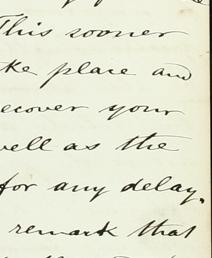 This sooner
ke place and
ecover your
well as the
for any delay.
remark that